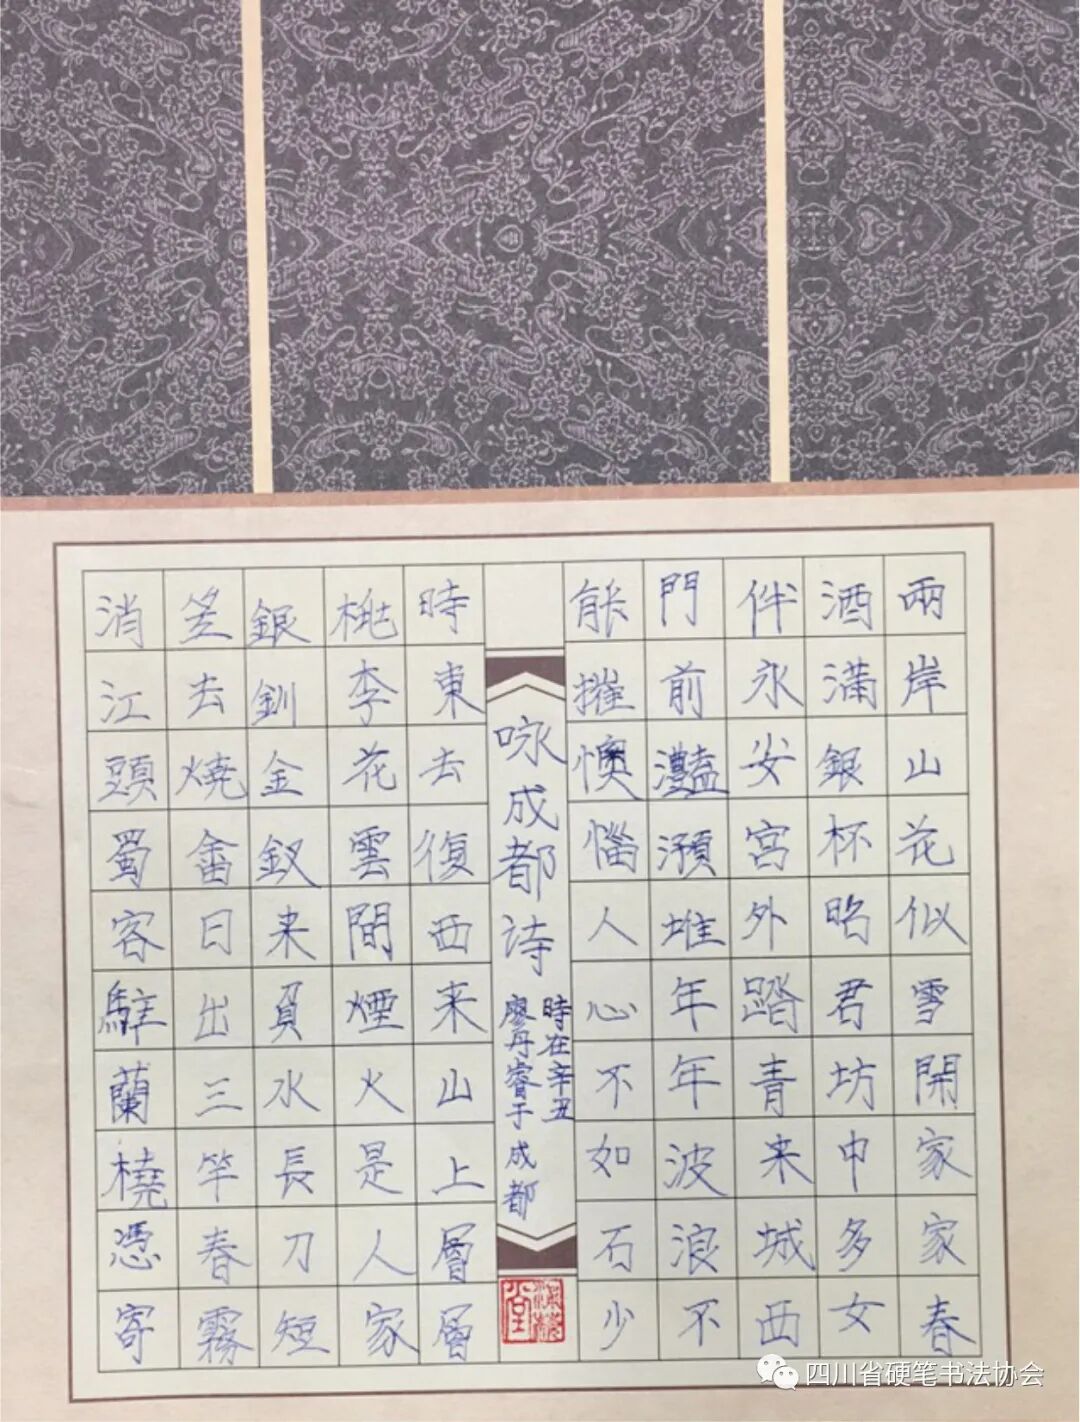 兩岸山花似雪開家家春
酒滿銀杯昭君坊中多女
伴永安宮外踏青来城西
門前灩澦堆年年波浪不
能摧懊惱人心不如石少
咏成都诗
時在辛丑
廖丹睿于成都
時東去復西来山上層層
桃李花雲間煙火是人家
銀釧金釵来負水長刀短
笠去燒畬日出三竿春霧
消江頭蜀客駐蘭橈憑寄
四川省硬笔书法协会